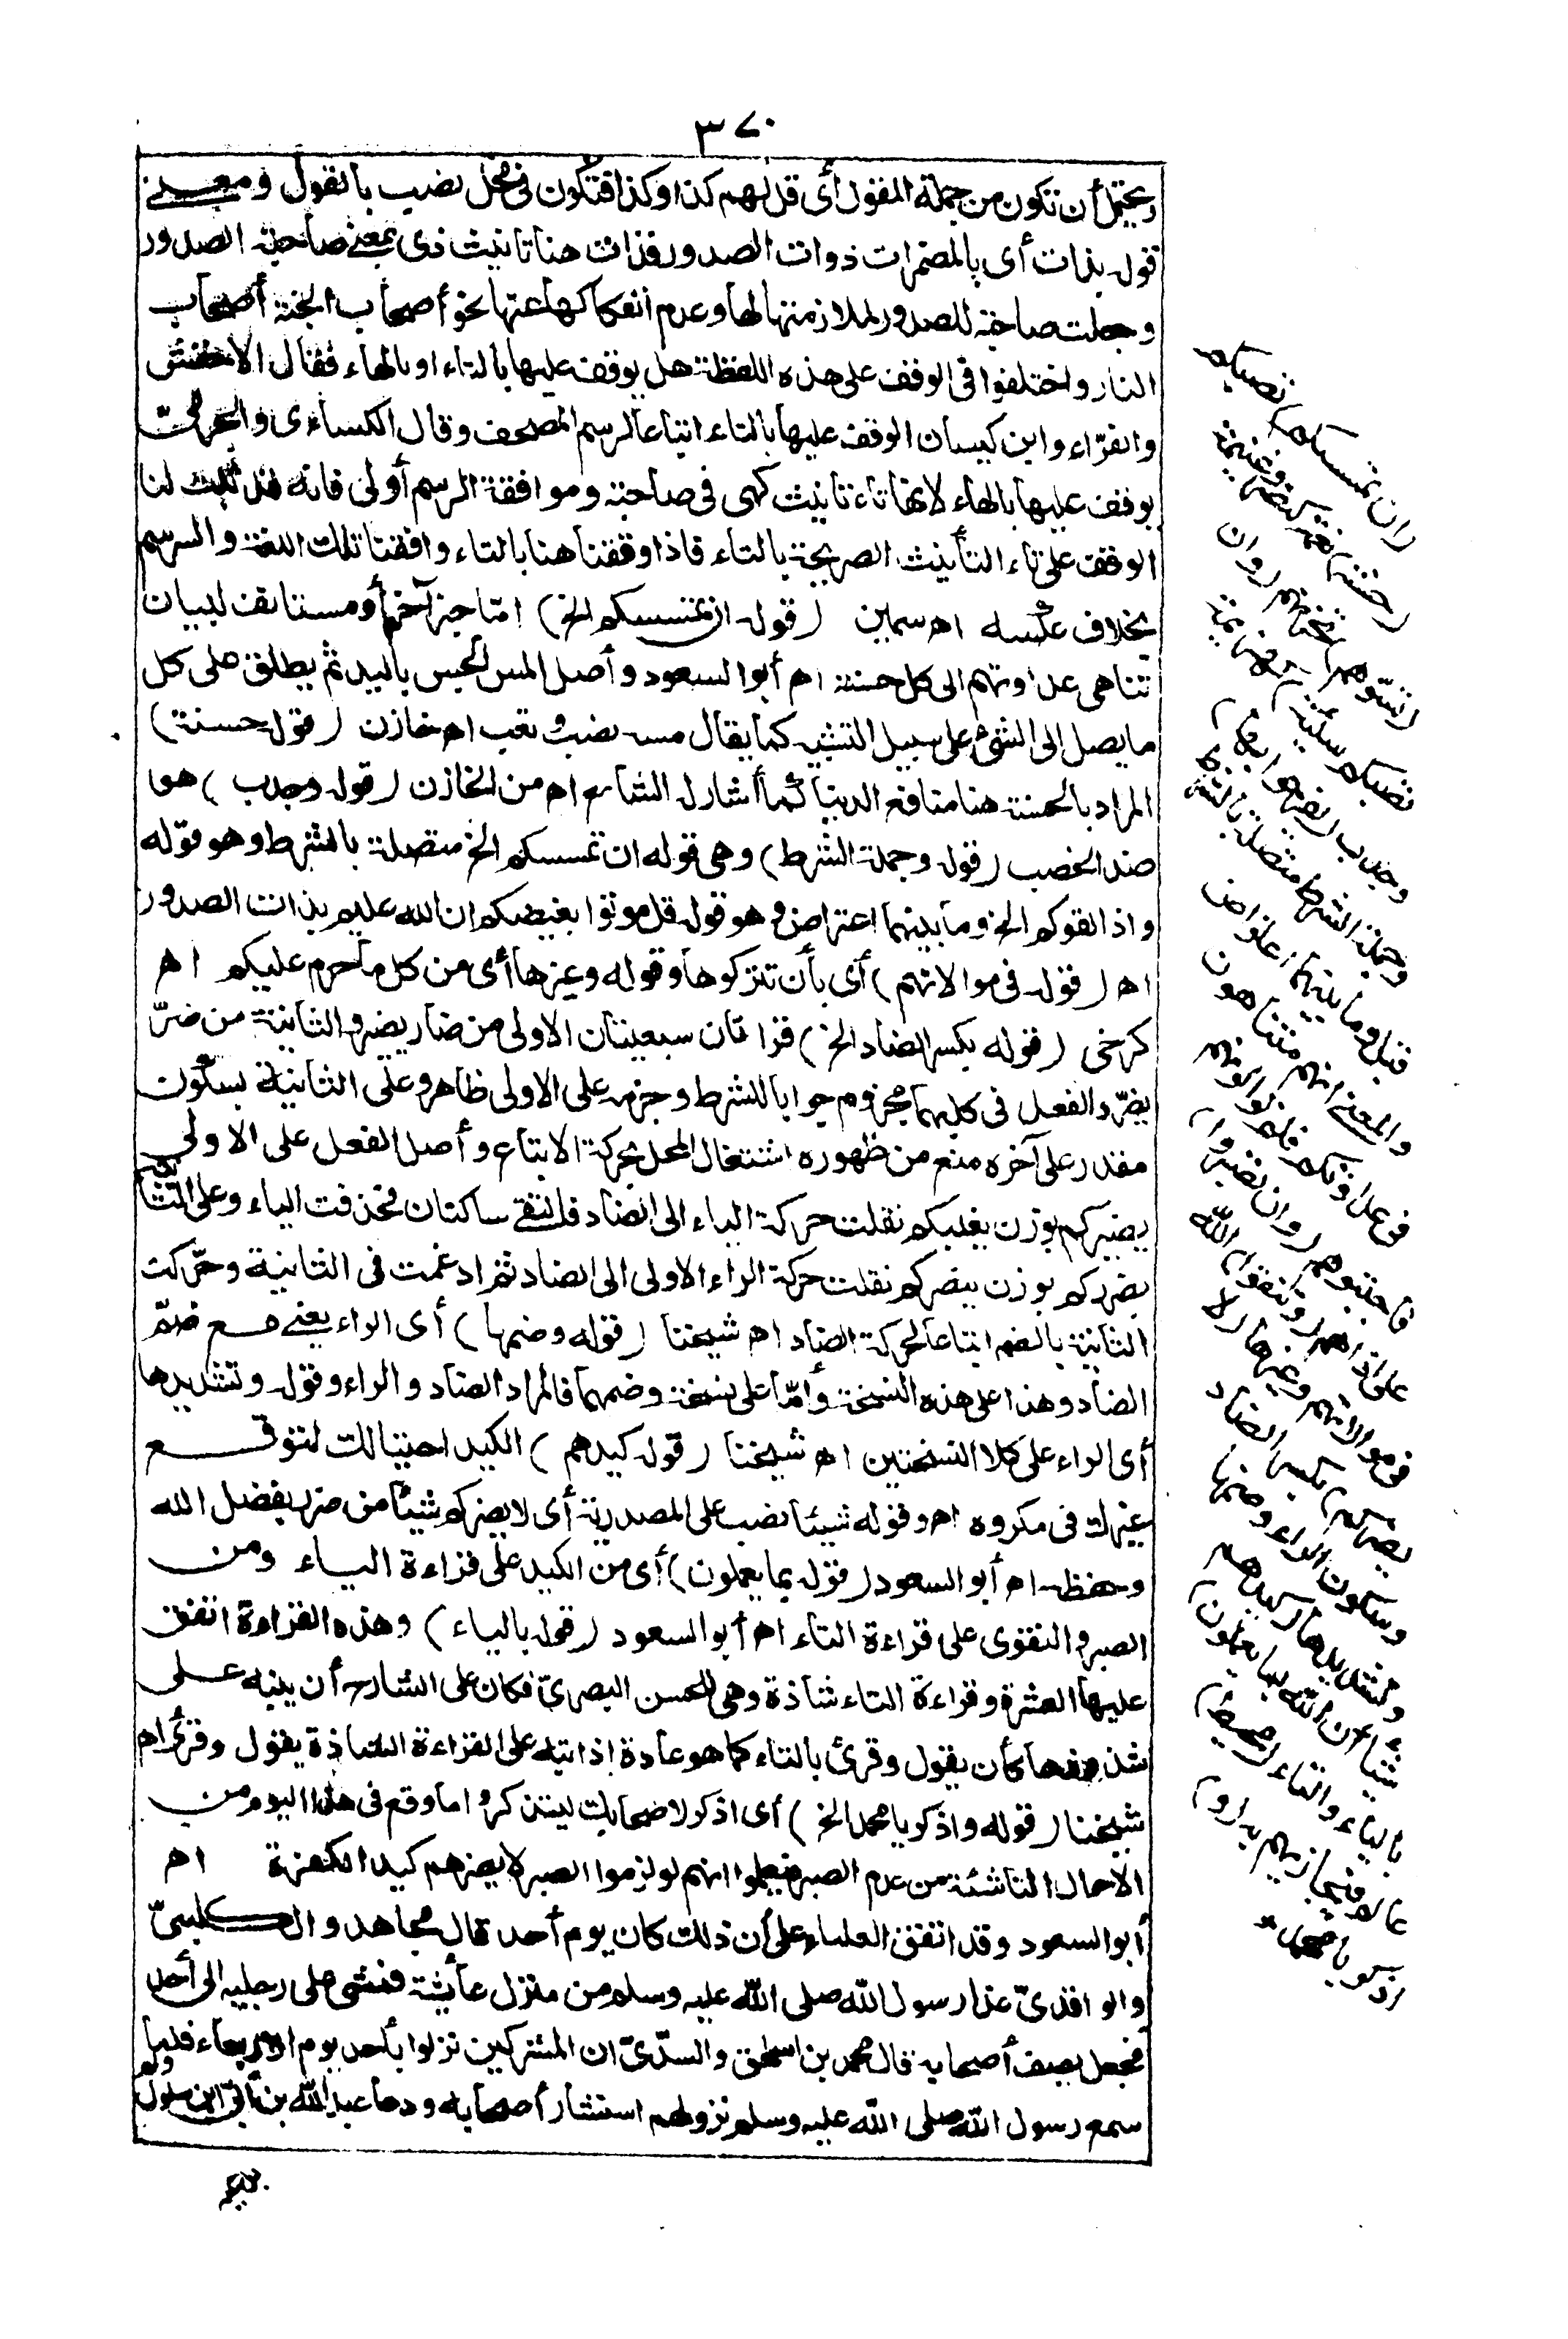 ٣٧٠
ويحتمل أن تكون من جملة المقول أى قل لهم كذا وكذا فتكون فى محل نصب بالقول ومعنى
قوله بذات أى بالمضمرات ذوات الصدور فذات هنا تأنيث ذى بمعنى صاحبة الصدور
وجعلت صاحبة للصدور لملازمتها لها وعدم انفكاكها عنها نحو أصحاب الجنة أصحاب
النار واختلفوا فى الوقف على هذه اللفظة هل يوقف عليها بالتاء او بالهاء فقال الأخفش
والفرّاء وابن كيسان الوقف عليها بالتاء اتباعا لرسم المصحف وقال الكساءى والجرمىّ
يوقف عليها بالهاء لانها تاء تأنيث كهى فى صاحبة وموافقة الرسم أولى فانه قد ثبت لنا
الوقف على تاء التأنيث الصريحة بالتاء فاذا وقفنا هنا بالتاء وافقنا تلك اللغة والرسم
بخلاف عكسه اه سمين (قوله ان تمسسكم الخ) امّا خبر آخر أو مستأنف لبيان
تناهى عداوتهم الى كل حسنة اه أبو السعود وأصل المس الجس باليد ثم يطلق على كل
ما يصل الى الشئ على سبيل التشبيه كما يقال مسه نصب وتعب اه خازن (قوله حسنة)
المراد بالحسنة هنا منافع الدنيا كما أشار له الشارح اه من الخازن (قوله وجدب) هو
ضد الخصب (قوله وجملة الشرط) وهى قوله ان تمسسكم الخ متصلة بالشرط وهو قوله
واذا لقوكم الخ وما بينهما اعتراض وهو قوله قل موتوا بغيظكم ان الله عليم بذات الصدور
اه (قوله فى موالاتهم) أى بأن تتركوها وقوله وغيرها أى من كل ما حرم عليكم اه
كرخى (قوله بكسر الضاد الخ) قراءتان سبعيتان الاولى من ضار يضير والثانية من ضرّ
يضرّ والفعل فى كليهما مجزوم جوابا للشرط وجزمه على الاولى ظاهر وعلى الثانية بسكون
مقدر على آخره منع من ظهوره اشتغال المحل بحركة الاتباع وأصل الفعل على الاولى
يضيركم بوزن يغلبكم نقلت حركة الياء الى الضاد فالتقى ساكنان فحذفت الياء وعلى الثانية
يضرركم بوزن ينصركم نقلت حركة الراء الاولى الى الضاد ثم ادغمت فى الثانية وحرّكت
الثانية بالضم اتباعا لحركة الضاد اه شيخنا (قوله وضمها) أى الراء يعنى مع ضمّ
الضاد وهذا على هذه النسخة وأمّا على نسخة وضمهما فالمراد الضاد والراء وقوله وتشديدها
أى الراء على كلا النسختين اه شيخنا (قوله كيدهم) الكيد احتيالك لتوقع
غيرك فى مكروه اه وقوله شيئا نصب على المصدرية أى لا يضركم شيئا من ضر بفضل الله
وحفظه اه أبو السعود (قوله بما يعملون) أى من الكيد على قراءة الياء ومن
الصبر والتقوى على قراءة التاء اه أبو السعود (قوله بالياء) وهذه القراءة اتفق
عليها العشرة وقراءة التاء شاذة وهى للحسن البصرىّ فكان على الشارح أن ينبه على
شذوذها كأن يقول وقرئ بالتاء كما هو عادة اذا نبه على القراءة الشاذة يقول وقرئ اه
شيخنا (قوله واذكر يا محمد الخ) أى اذكر لاصحابك ليتذكروا ما وقع فى هذا اليوم من
الاحوال الناشئة من عدم الصبر فيعلموا انهم لو لزموا الصبر لا يضرهم كيد الكفرة اه
أبو السعود وقد اتفق العلماء على أن ذلك كان يوم أحد قال مجاهد والكلبىّ
والواقدىّ غدا رسول الله صلى الله عليه وسلم من منزل عائشة فمشى على رجليه الى أحد
فجعل يصف أصحابه قال محمد بن اسحق والسدّىّ ان المشركين نزلوا بأحد يوم الاربعاء فلما
سمع رسول الله صلى الله عليه وسلم بنزولهم استشار أصحابه ودعا عبد الله بن أبىّ ابن سلول
ولم
(ان تمسسكم) تصبكم
(حسنة) نعمة كنصر وغنيمة
(تسؤهم) تحزنهم (وان
تصبكم سيئة) كهزيمة
وجدب (يفرحوا بها)
وجملة الشرط متصلة بالشرط
قبل وما بينهما اعتراض
والمعنى انهم متناهون
فى عداوتكم فلم توالونهم
فاجتنبوهم (وان تصبروا)
على اذاهم (وتتقوا) الله
فى موالاتهم وغيرها (لا
يضركم) بكسر الضاد
وسكون الراء وضمها
وتشديدها (كيدهم
شيئا ان الله بما يعملون)
بالياء والتاء (محيط)
عالم فيجازيهم به (و)
اذكر يا محمد